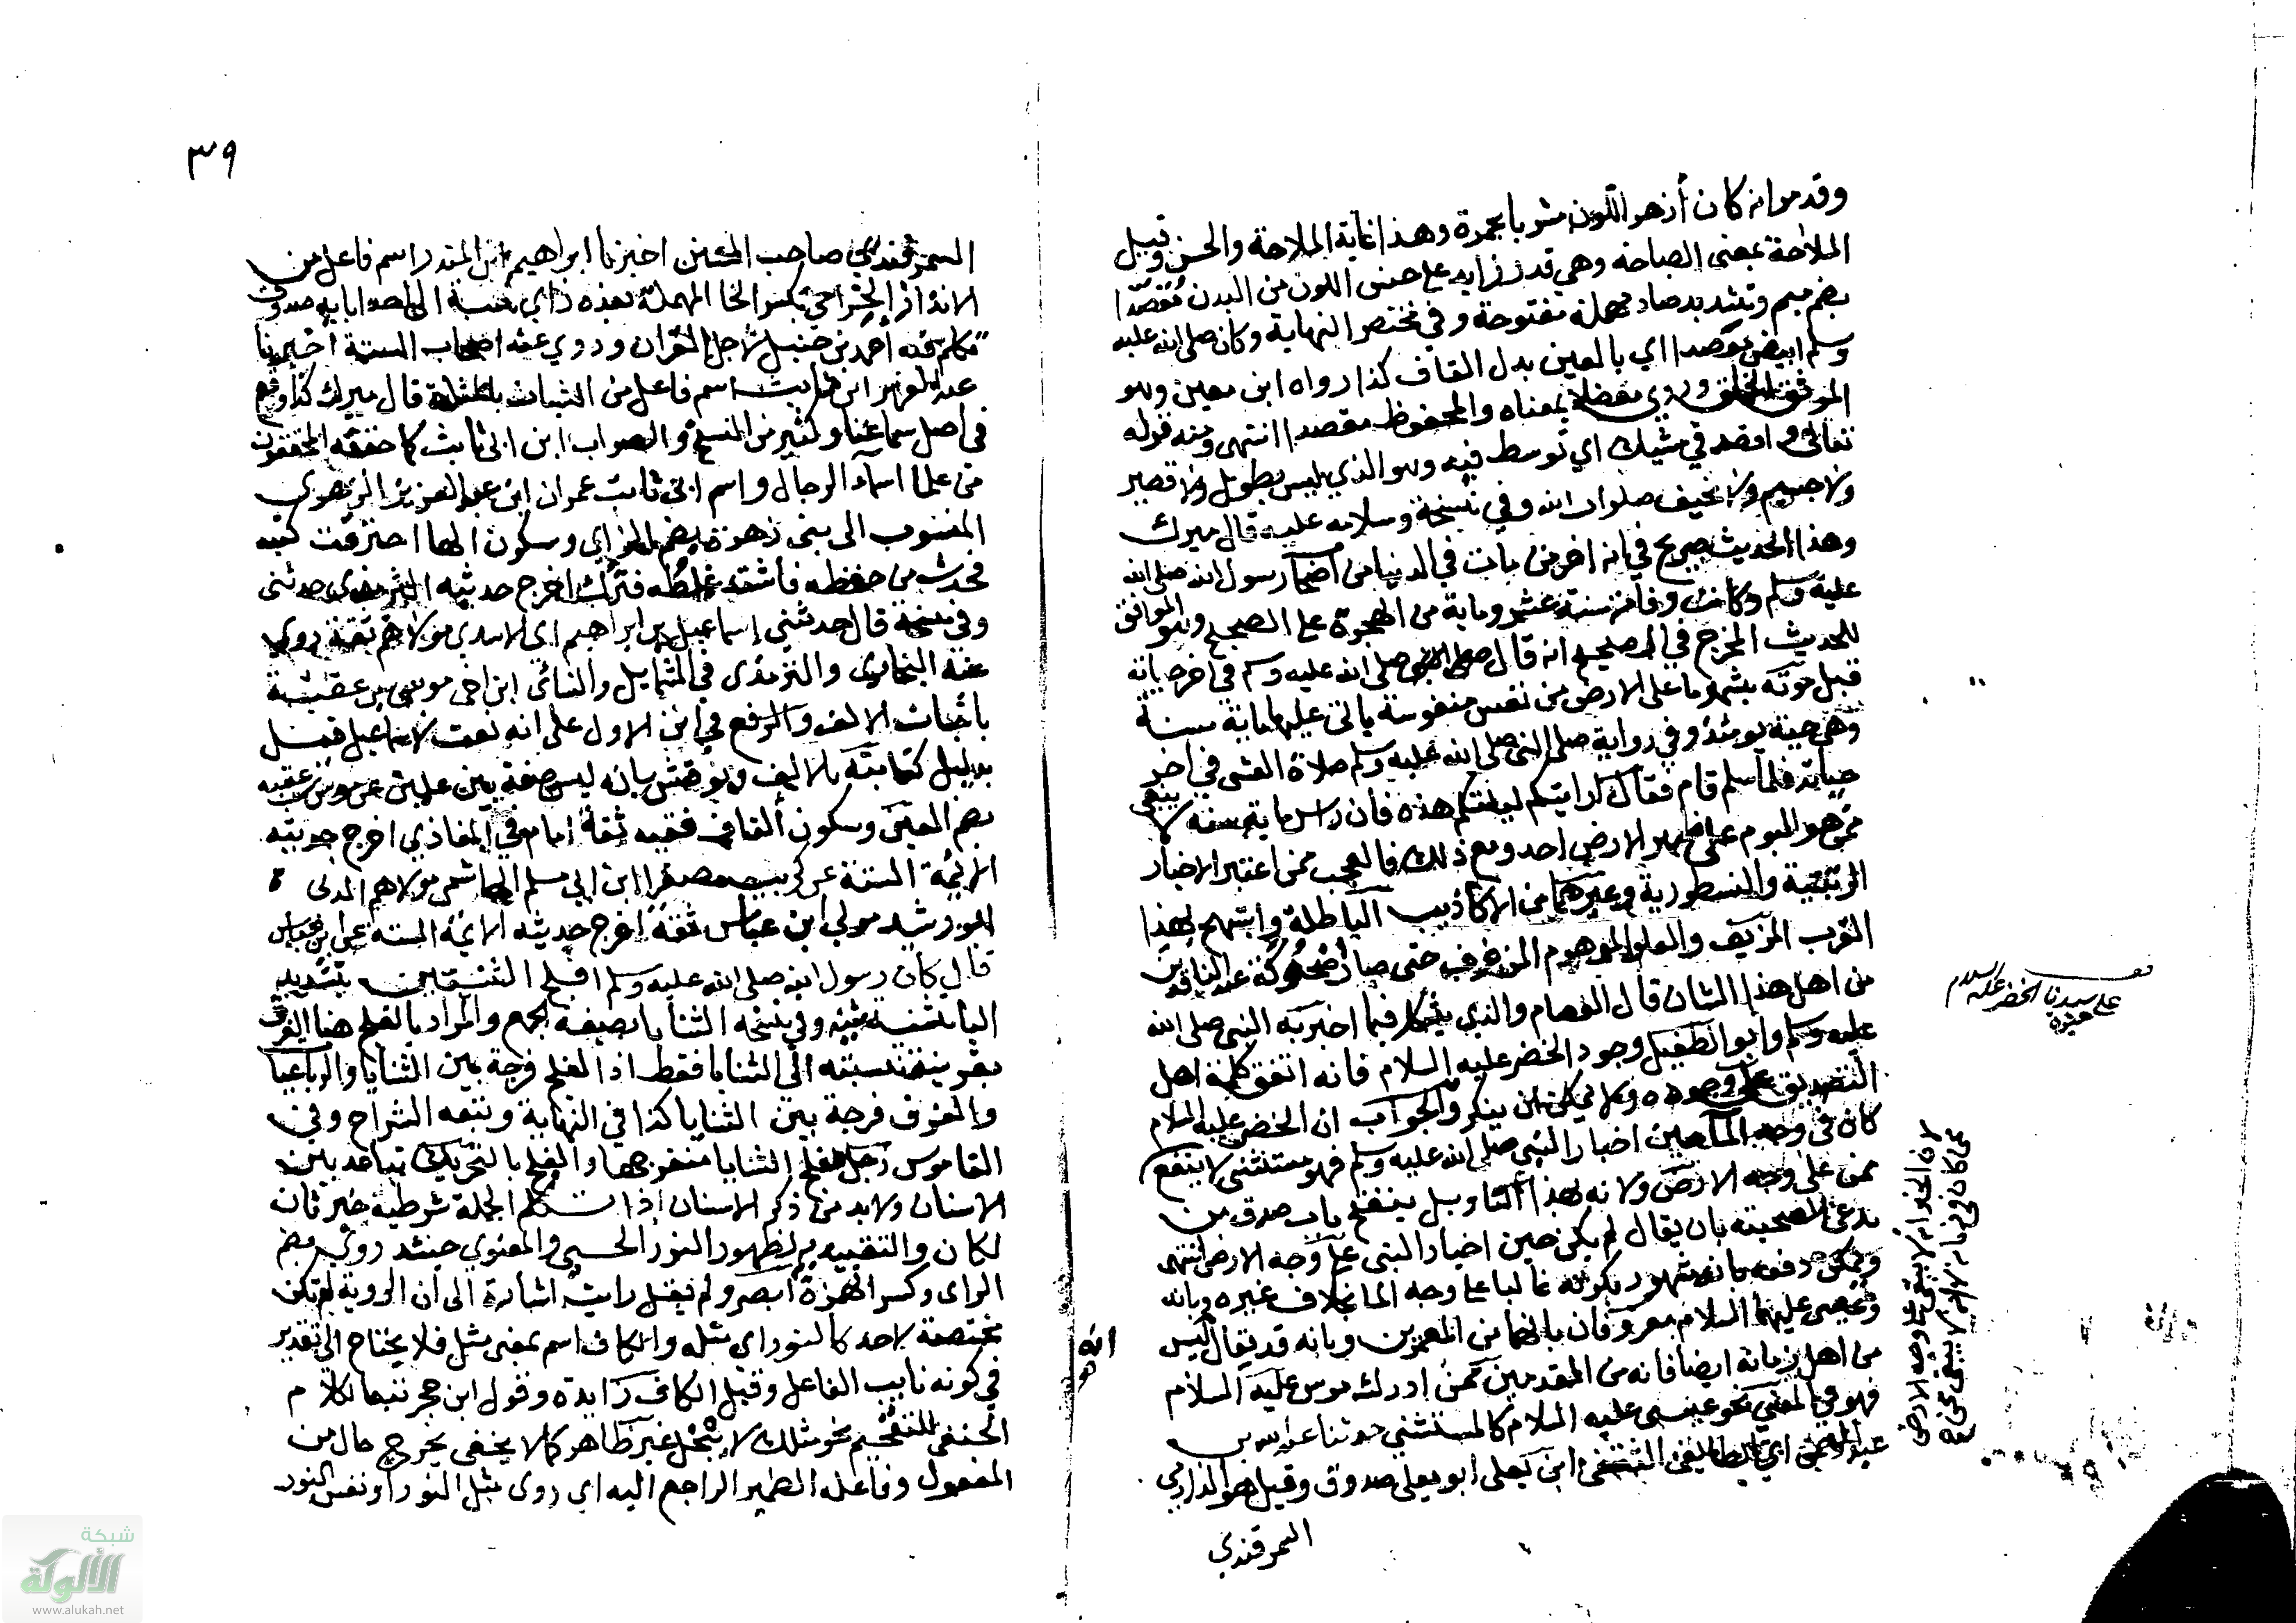 وقد مر انه كان أزهر اللون مشربا بحمرة وهذا غاية الملاحة والحسن وقيل
الملاحة بمعنى الصباحة وهي قدر زايد على حسن اللون من البدن مقصدا
بضم ميم وتشديد صاد مهملة مفتوحة وفي مختصر النهاية وكان صلى الله عليه
وسلم ابيض مقصدا اي بالعين بدل القاف كذا رواه ابن معين وهو
الموثق الخلق وروي مفضلا بمعناه والمحفوظ مقصدا انتهى ومنه قوله
تعالى واقصد في مشيك اي توسط فيه وهو الذي ليس بطويل ولا قصير
ولا جسيم ولا نحيف صلوات الله وفي نسخة وسلامه عليه قال ميرك
وهذا الحديث صريح في انه اخر من مات في الدنيا من اصحاب رسول الله صلى الله
عليه وسلم وكانت وفاته سنة عشر وماية من الهجرة على الصحيح وهو الموافق
للحديث المخرج في الصحيح انه قال صلى الله عليه وسلم في اخر حياته
قبل موته بشهر ما على الارض من نفس منفوسة ياتي عليها ماية سنة
وهي حية يومئذ وفي رواية صلى النبي صلى الله عليه وسلم صلاة العشى في اخر
حياته فلما سلم قام فقال ارايتكم ليلتكم هذه فان راس ماية سنة لا يبقى
ممن هو اليوم على ظهر الارض احد ومع ذلك فالعجب ممن اعتبر الاخبار
الرتنية والنسطورية وغيرهما من الاكاذيب الباطلة وابتهج بهذا
القرب المزيف والعلو الموهوم المزخرف حتى صار ضحوكة عند الناقدين
من اهل هذا الشان قال العصام والذي يشكل فيما اخبر به النبي صلى الله
عليه وسلم وابو الطفيل وجود الخضر عليه السلام فانه اتفق كلمة اهل
التصديق على وجوده ولا يمكن ان ينكر والجواب ان الخضر عليه السلام
كان في وجه الماء حين اخبار النبي صلى الله عليه وسلم فهو مستثنى لا ينفع
ممن على وجه الارض ولانه لهذا التاويل ينفتح باب صدق من
يدعي الصحبة بان يقال لم يكن حين اخبار النبي على وجه الارض انتهى
ويمكن دفعه بانه مشهور بكونه غالبا على وجه الما بخلاف غيره وبانه
وعيسى عليهما السلام معروفان بانهما من المعمرين وبانه قد يقال ليس
من اهل زمانه ايضا فانه من المتقدمين ممن ادرك موسى عليه السلام
فهو في المعنى نحو عيسى عليه السلام كالمستثنى حدثنا عبد الله بن
عبد الرحمن اي الطائفي الثقفي ابن يعلى ابو يعلى صدوق وقيل هو الدارمي
السمرقندي
على سيدنا الخضر عليه السلام
انه
هو
٣٩
السمرقندي صاحب المسند اخبرنا ابراهيم ابن المنذر اسم فاعل من
الانذار الحزامي بكسر الحا المهملة بعده زاي نسبة الى احد ابايه صدوق
تكلم فيه أحمد بن حنبل لاجل القران وروي عنه اصحاب الستة اخبرنا
عبد العزيز ابن ثابت اسم فاعل من الثبات بالمثلثة قال ميرك كذا وقع
في اصل سماعنا وكثير من النسخ والصواب ابن ابي ثابت كما حققه المحققون
من علما اسماء الرجال واسم ابي ثابت عمران ابن عبد العزيز الزهري
المنسوب الى بني زهرة بضم الزاي وسكون الها احترقت كتبه
فحدث من حفظه فاشتد غلطه فترك اخرج حديثه الترمذي حدثني
وفي نسخة قال حدثني إسماعيل بن ابراهيم اي الاسدي مولاهم ثقة روي
عنه البخاري والترمذي في الشمايل والنسائي ابن اخي موسى بن عقبة
باثبات الالف والرفع في ابن الاول على انه نعت لاسماعيل قيل
بدليل كتابته بالالف ونوقش بانه ليس صفة بين علمين عن موسى بن عقبه
بضم العين وسكون ألقاف فقيه ثقة امام في المغازي اخرج حديثه
الائمة الستة عن كريب مصغرا ابن ابي مسلم الهاشمي مولاهم المدني
ابو رشد مولى ابن عباس ثقة اخرج حديثه الائمة الستة عن ابن عباس
قال كان رسول الله صلى الله عليه وسلم افلج الثنيتين بتشديد
اليا تثنية ثنية وفي نسخه الثنايا بصيغة الجمع والمراد بالفلج هنا الفرق
بقرينة نسبته الى الثنايا فقط اذ الفلج فرجة بين الثنايا والرباعيا
والفرق فرجة بين الثنايا كذا في النهاية وتبعه الشراح وفي
القاموس رجل مفلج الثنايا منفرجها والفلج بالتحريك تباعد بين
الاسنان ولا بد من ذكر الاسنان إذا تكلم الجملة شرطية خبر ثان
لكان والتقييد به لظهور النور الحسي والمعنوي حينئذ روي بضم
الراى وكسر الهمزة أبصر ولم يقل رايت اشارة الى ان الروية لم تكن
مختصة لاحد كالنور اي مثله والكاف اسم بمعنى مثل فلا يحتاج الى تقدير
في كونه نايب الفاعل وقيل الكاف زايدة وقول ابن حجر تبعا لكلام
الحنفي للتفخيم نحو مثلك لا يبخل غير ظاهر كما لا يخفى يخرج حال من
المفعول وفاعله الضمير الراجع اليه اي روى مثل النور او نفس النور
شبكة
الألوكة
www.alukah.net